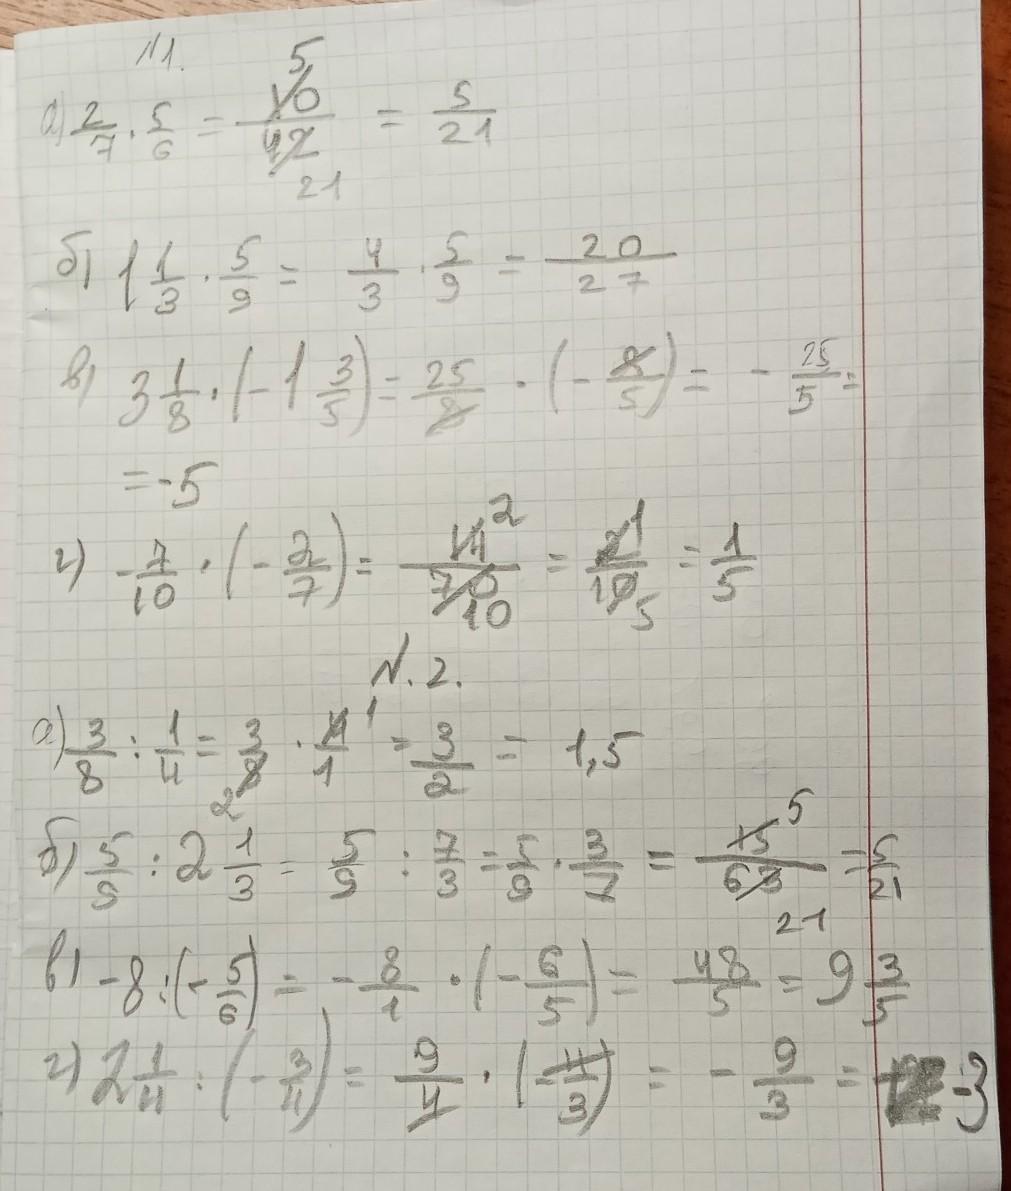 №1.
а) 2/7 · 5/6 = 10/42 (5/21) = 5/21
б) 1 1/3 · 5/9 = 4/3 · 5/9 = 20/27
в) 3 1/8 · (-1 3/5) = 25/8 · (-8/5) = -25/5 =
= -5
г) -7/10 · (-2/7) = 14/70 (2/10) = 2/10 (1/5) = 1/5
N.2.
а) 3/8 : 1/4 = 3/8 (2) · 4/1 (1) = 3/2 = 1,5
б) 5/9 : 2 1/3 = 5/9 : 7/3 = 5/9 · 3/7 = 15/63 (5/21) = 5/21
в) -8 : (-5/6) = -8/1 · (-6/5) = 48/5 = 9 3/5
г) 2 1/4 : (-3/4) = 9/4 · (-4/3) = -9/3 = -3